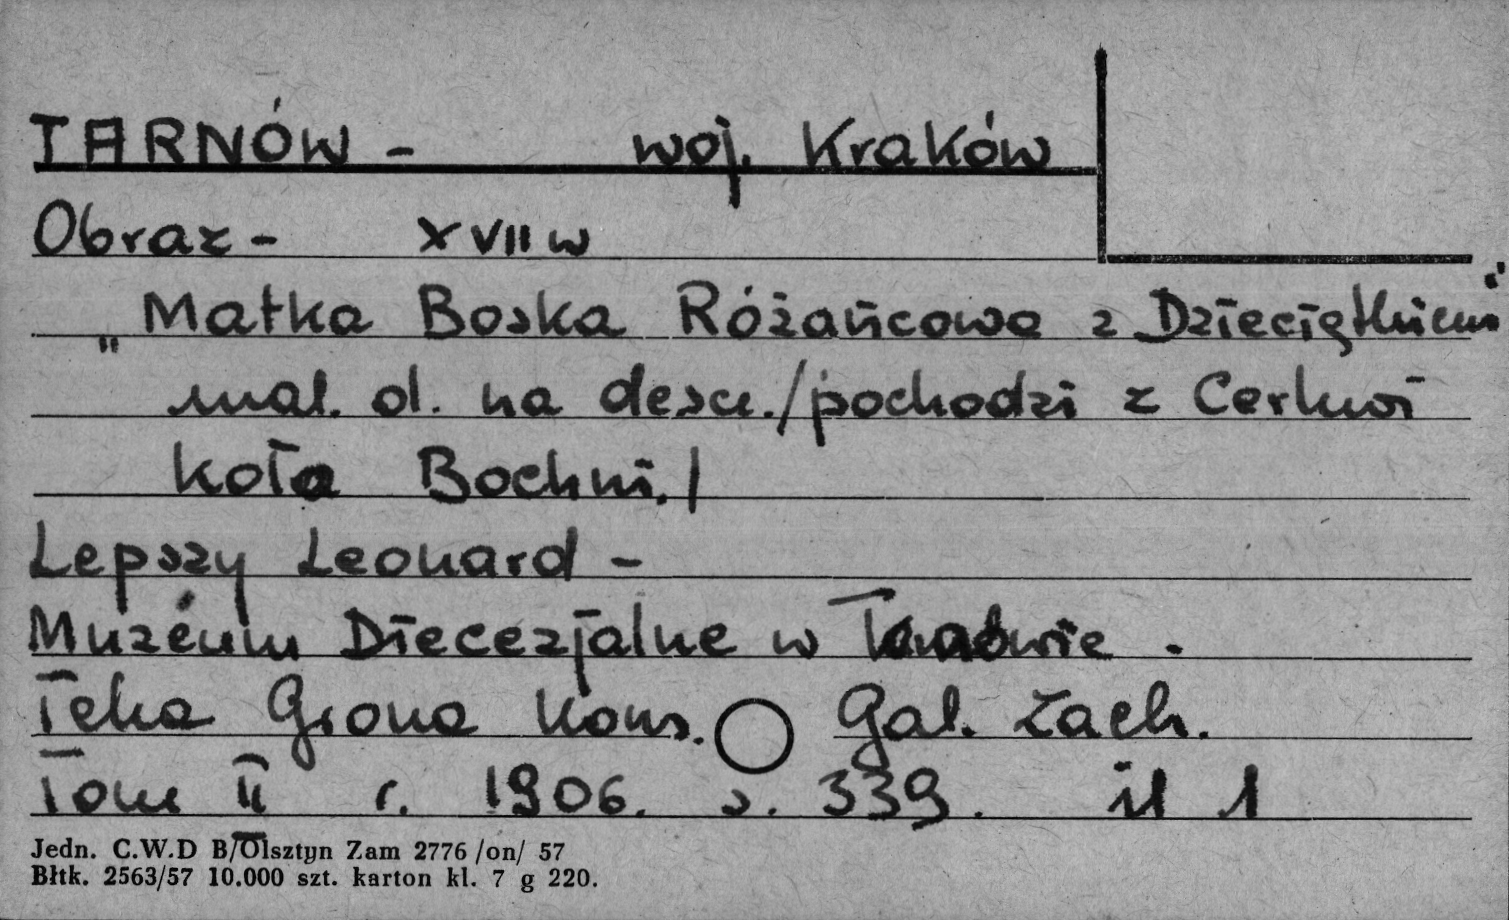 TARNÓW - woj. Kraków
Obraz - XVII w
"Matka Boska Różańcowa z Dzieciątkiem"
mal. ol. na desce./pochodzi z Cerkwi
koło Bochni./
Lepszy Leonard -
Muzeum Diecezjalne w Tarnowie.
Teka Grona Kons. Gal. Zach.
Tom II r. 1906. s. 339. il 1
Jedn. C.W.D B/Olsztyn Zam 2776 /on/ 57
Błtk. 2563/57 10.000 szt. karton kl. 7 g 220.